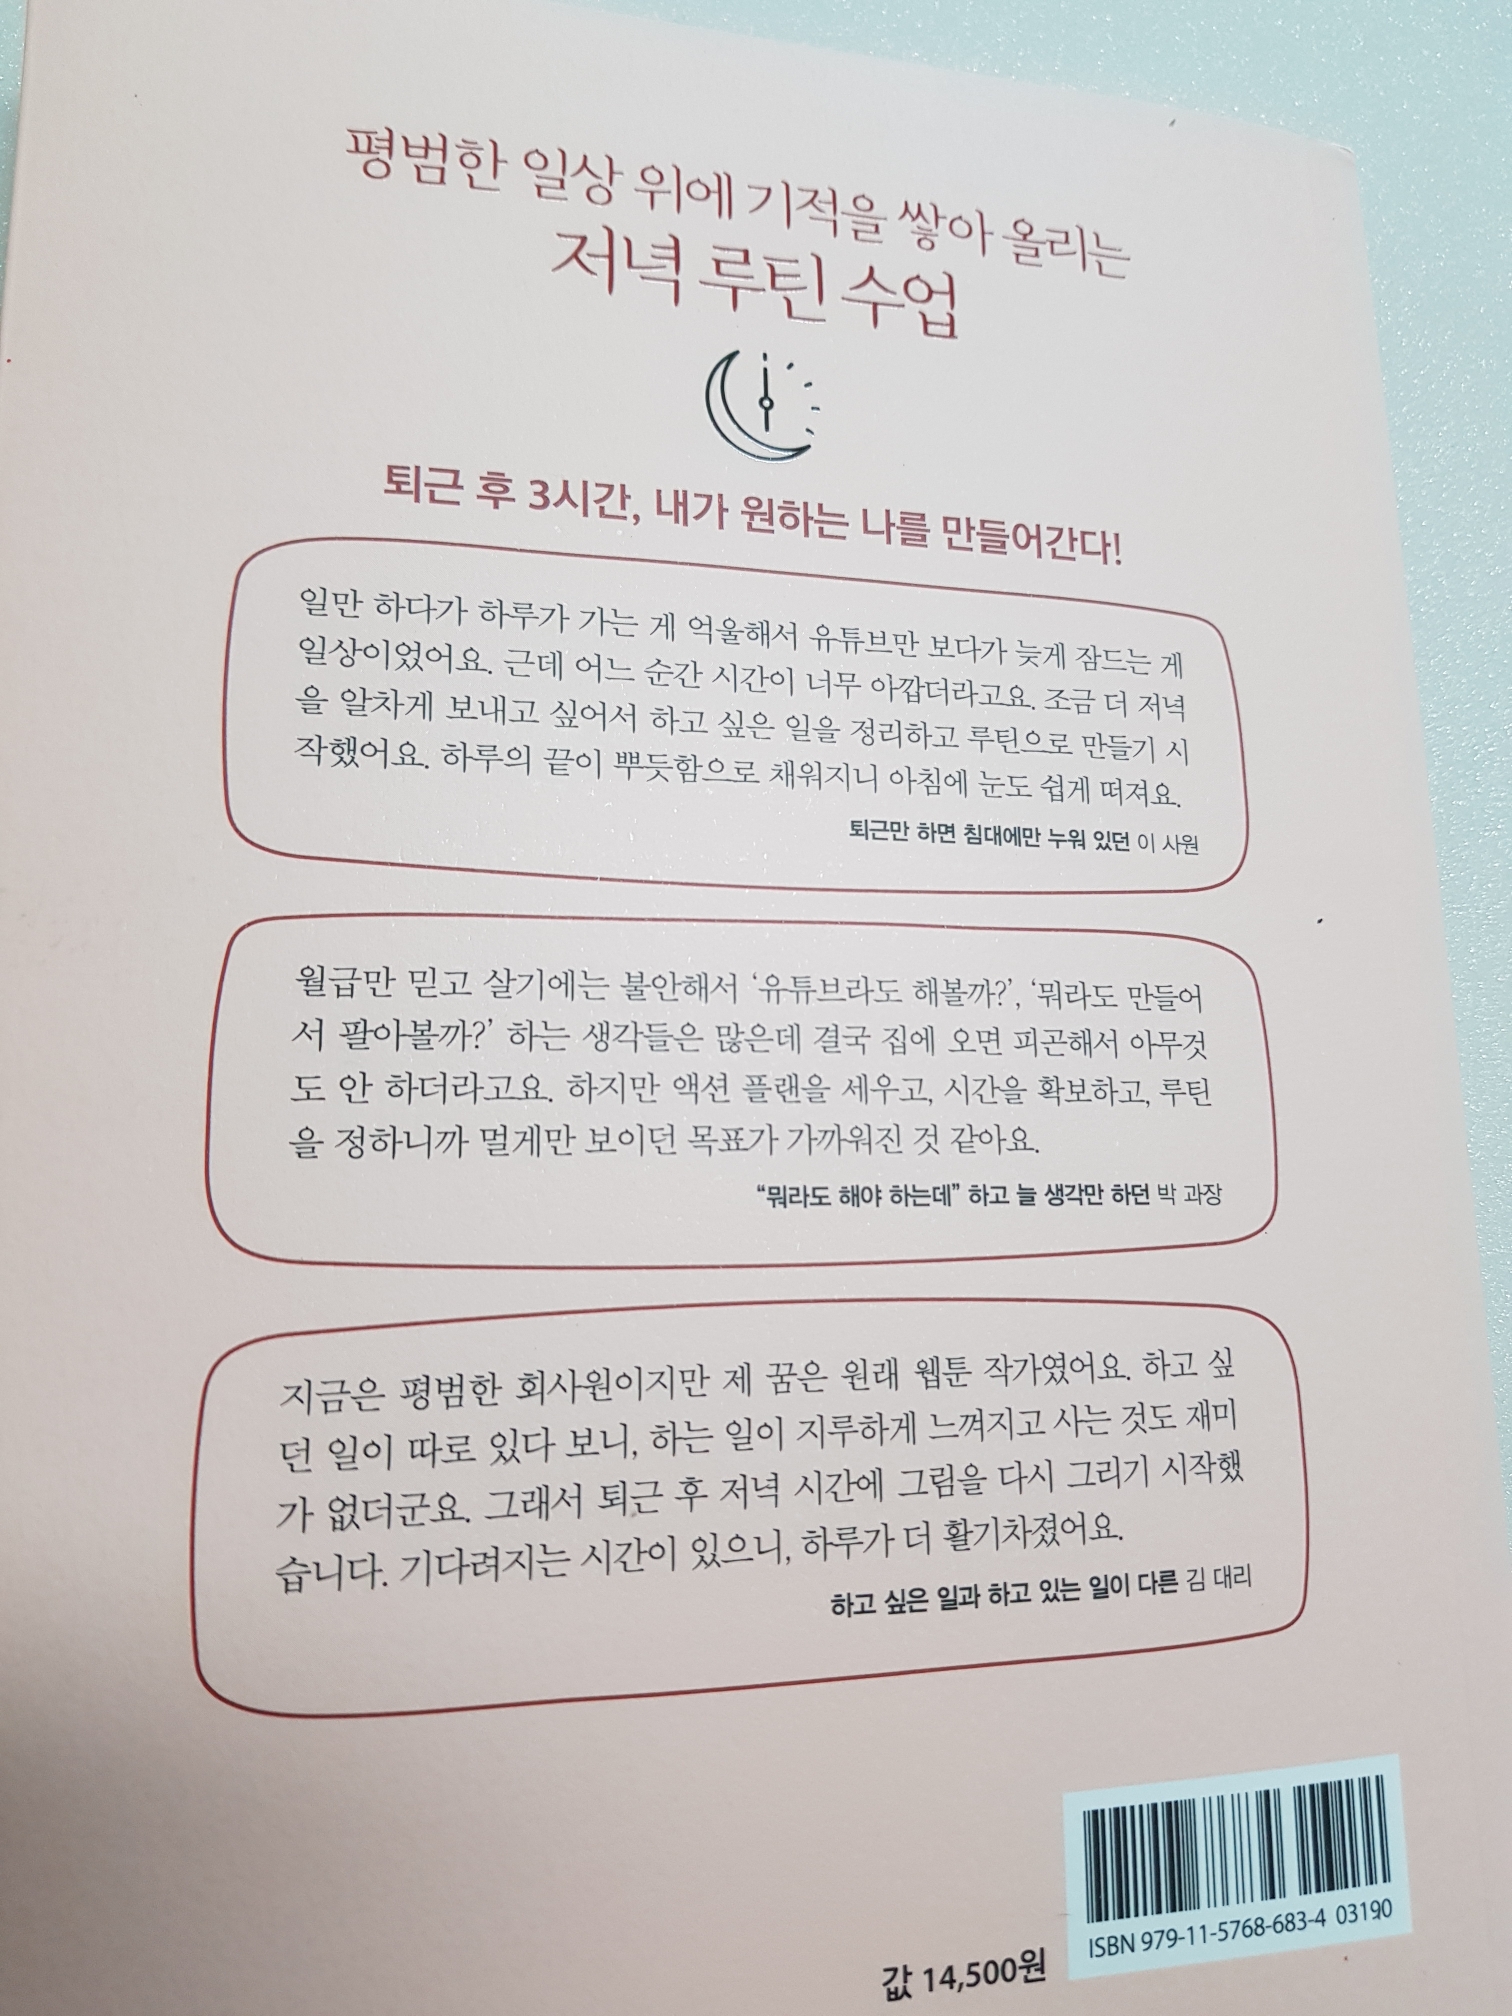 평범한 일상 위에 기적을 쌓아 올리는
저녁 루틴 수업
퇴근 후 3시간, 내가 원하는 나를 만들어간다!
일만 하다가 하루가 가는 게 억울해서 유튜브만 보다가 늦게 잠드는 게
일상이었어요. 근데 어느 순간 시간이 너무 아깝더라고요. 조금 더 저녁
을 알차게 보내고 싶어서 하고 싶은 일을 정리하고 루틴으로 만들기 시
작했어요. 하루의 끝이 뿌듯함으로 채워지니 아침에 눈도 쉽게 떠져요.
퇴근만 하면 침대에만 누워 있던 이 사원
월급만 믿고 살기에는 불안해서 ‘유튜브라도 해볼까?’, ‘뭐라도 만들어
서 팔아볼까?’ 하는 생각들은 많은데 결국 집에 오면 피곤해서 아무것
도 안 하더라고요. 하지만 액션 플랜을 세우고, 시간을 확보하고, 루틴
을 정하니까 멀게만 보이던 목표가 가까워진 것 같아요.
“뭐라도 해야 하는데” 하고 늘 생각만 하던 박 과장
지금은 평범한 회사원이지만 제 꿈은 원래 웹툰 작가였어요. 하고 싶
던 일이 따로 있다 보니, 하는 일이 지루하게 느껴지고 사는 것도 재미
가 없더군요. 그래서 퇴근 후 저녁 시간에 그림을 다시 그리기 시작했
습니다. 기다려지는 시간이 있으니, 하루가 더 활기차졌어요.
하고 싶은 일과 하고 있는 일이 다른 김 대리
ISBN 979-11-5768-683-4 03190
값 14,500원